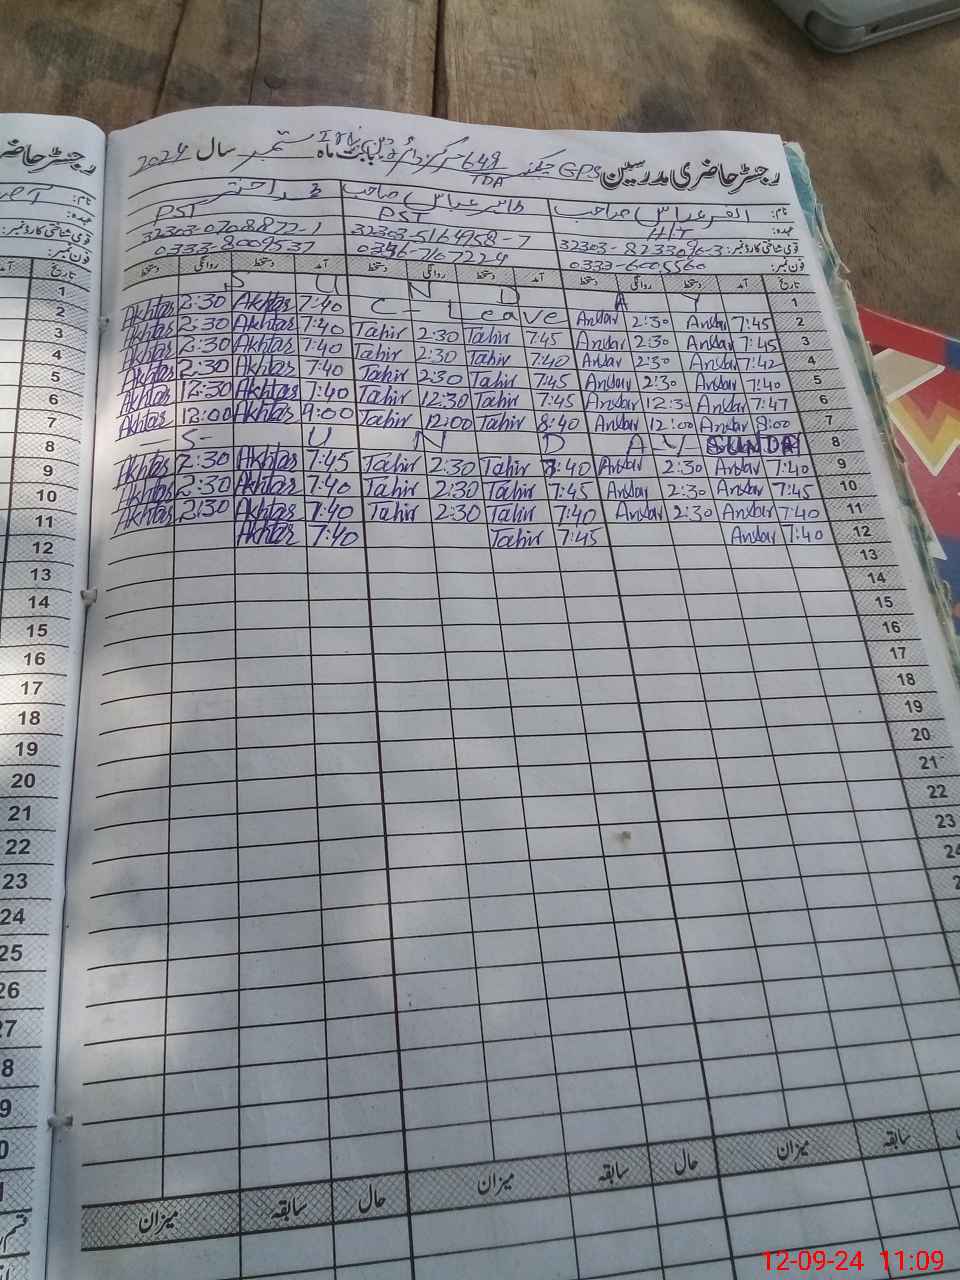 رجسٹر حاضری مدرسین GPS چک نمبر 649 TDA بابت ماہ ستمبر سال 2024
نام: صاحب طاہر عباس صاحب محمد اختر
عہدہ: PST PST
قومی شناختی کارڈ نمبر: 32303-5164958-7 32303-0208872-1
فون نمبر: 0333-6005560 0346-7107224 0333-8009537
تاریخ آمد دستخط روانگی دستخط آمد دستخط روانگی دستخط آمد دستخط روانگی دستخط
1 S U N D A Y
2 7:45 Ansar 2:30 Ansar C-Leave 7:40 Akhtar 2:30 Akhtar
3 7:45 Ansar 2:30 Ansar 7:45 Tahir 2:30 Tahir 7:40 Akhtar 2:30 Akhtar
4 7:42 Ansar 2:30 Ansar 7:40 Tahir 2:30 Tahir 7:40 Akhtar 2:30 Akhtar
5 7:40 Ansar 2:30 Ansar 7:45 Tahir 2:30 Tahir 7:40 Akhtar 2:30 Akhtar
6 7:47 Ansar 12:30 Ansar 7:45 Tahir 12:30 Tahir 7:40 Akhtar 12:30 Akhtar
7 8:00 Ansar 12:00 Ansar 8:40 Tahir 12:00 Tahir 9:00 Akhtar 12:00 Akhtar
8 S U N D A Y SUNDA
9 7:40 Ansar 2:30 Ansar 7:40 Tahir 2:30 Tahir 7:45 Akhtar 2:30 Akhtar
10 7:45 Ansar 2:30 Ansar 7:45 Tahir 2:30 Tahir 7:40 Akhtar 2:30 Akhtar
11 7:40 Ansar 2:30 Ansar 7:40 Tahir 2:30 Tahir 7:40 Akhtar 2:30 Akhtar
12 7:40 Ansar 7:45 Tahir 7:40 Akhtar
13
14
15
16
17
18
19
20
21
22
23
24
سابقہ میزان حال سابقہ میزان حال سابقہ میزان
رجسٹر حاضری
نام:
عہدہ:
قومی شناختی کارڈ نمبر:
فون نمبر:
تاریخ
1
2
3
4
5
6
7
8
9
10
11
12
13
14
15
16
17
18
19
20
21
22
23
24
25
26
27
12-09-24 11:09